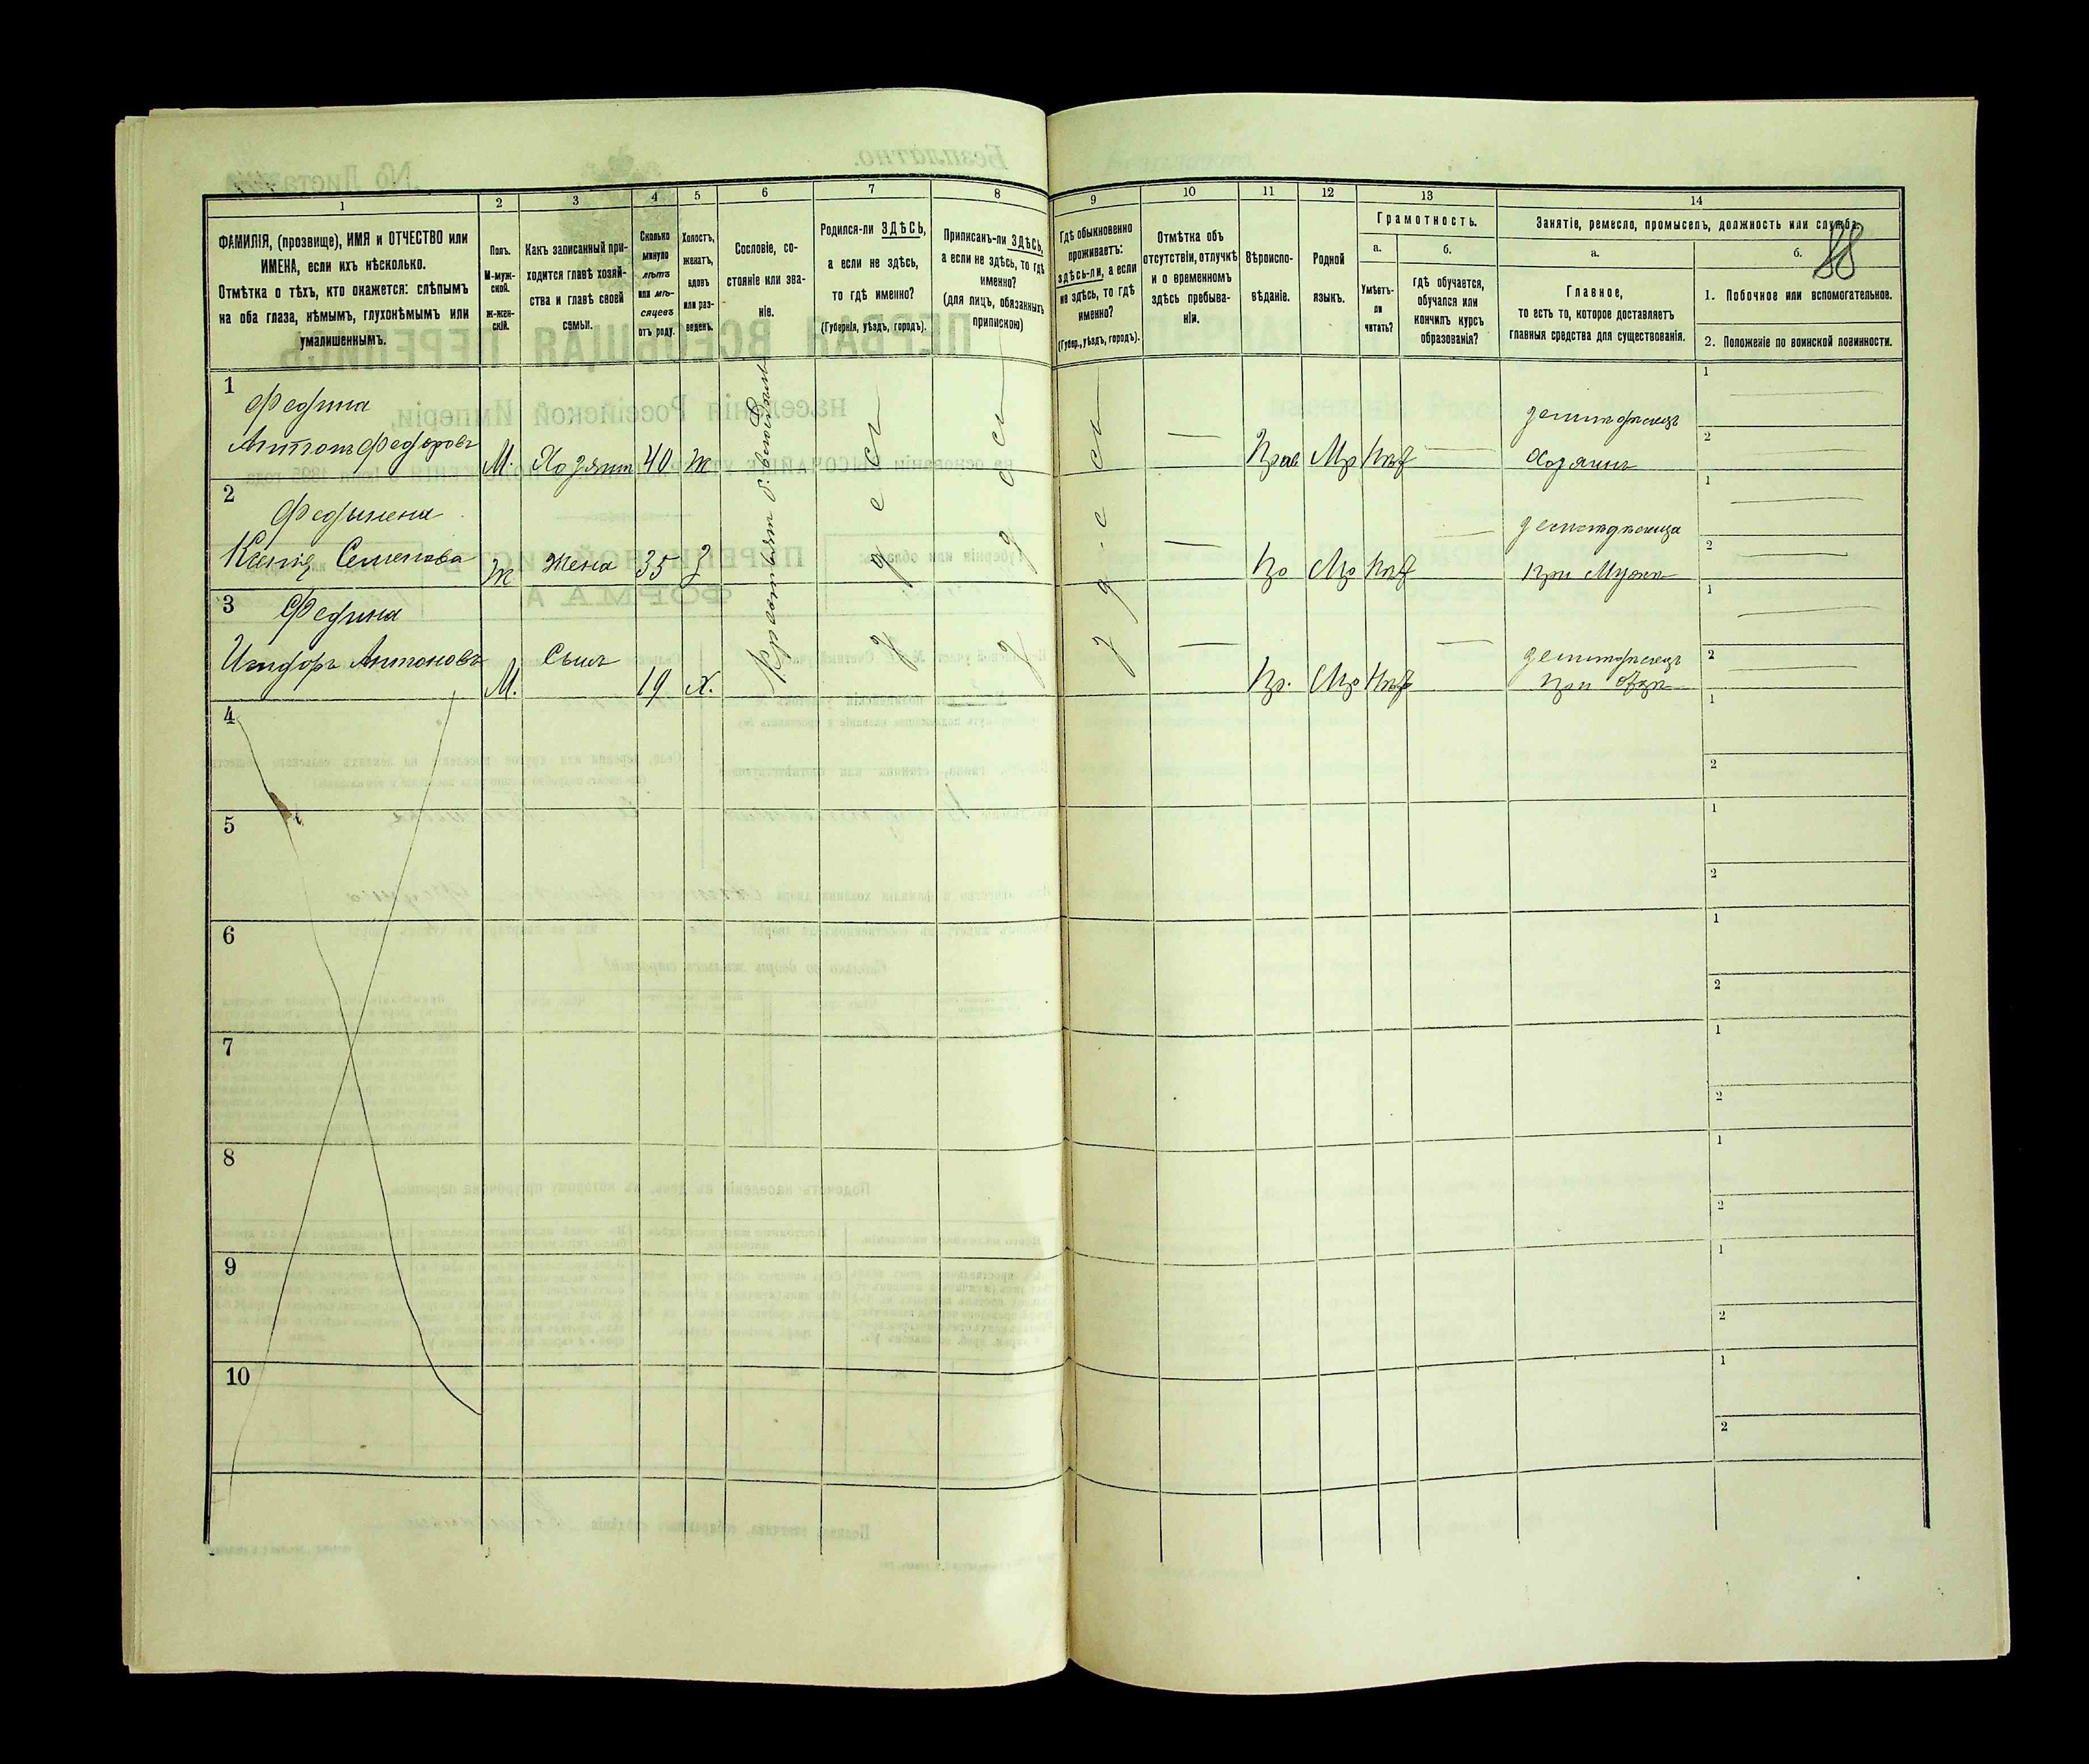 1 2 3 4 5 6 7 8 9 10 11 12 13 14
ФАМИЛІЯ, (прозвище), ИМЯ и ОТЧЕСТВО или
ИМЕНА, если ихъ нѣсколько.
Отмѣтка о тѣхъ, кто окажется: слѣпымъ
на оба глаза, нѣмымъ, глухонѣмымъ или
умалишеннымъ.
Полъ.
М-муж-
ской.
ж-жен-
скій.
Какъ записанный при-
ходится главѣ хозяй-
ства и главѣ своей
семьи.
Сколько
минуло
лѣтъ
или мѣ-
сяцевъ
отъ роду.
Холостъ,
женатъ,
вдовъ
или раз-
веденъ.
Сословіе, со-
стояніе или зва-
ніе.
Родился-ли ЗДѢСЬ,
а если не здѣсь,
то гдѣ именно?
(Губернія, уѣздъ, городъ).
Приписанъ-ли ЗДѢСЬ,
а если не здѣсь, то гдѣ
именно?
(для лицъ, обязанныхъ
припискою)
Гдѣ обыкновенно
проживаетъ:
здѣсь-ли, а если
не здѣсь, то гдѣ
именно?
(Губер., уѣздъ, городъ).
Отмѣтка объ
отсутствіи, отлучкѣ
и о временномъ
здѣсь пребыва-
ніи.
Вѣроиспо-
вѣданіе.
Родной
языкъ.
Грамотность.
а.
б.
Умѣетъ-
ли
читать?
гдѣ обучается,
обучался или
кончилъ курсъ
образованія?
Занятіе, ремесло, промыселъ, должность или служба.
88
а.
б.
Главное,
то есть то, которое доставляетъ
главныя средства для существованія.
1. Побочное или вспомогательное.
2. Положеніе по воинской повинности.
1 Федина
Антонъ Федоровъ М. Хозяин 40 ж Прав Мр Нѣт земледѣлецъ
Хозяинъ
2 Федынена
Ксенія Семенова Ж Жена 35 З Пр Мр Нѣт
при Мужѣ
3 Федина
Антоновъ М. Сынъ 19 Х. Пр. Мр Нѣт земледѣлецъ
при отцѣ
Крестьян б.
здесь
здесь
здесь
4
5
6
7
8
9
10
1
2
1
2
1
2
1
2
1
2
1
2
1
2
1
2
1
2
1
2